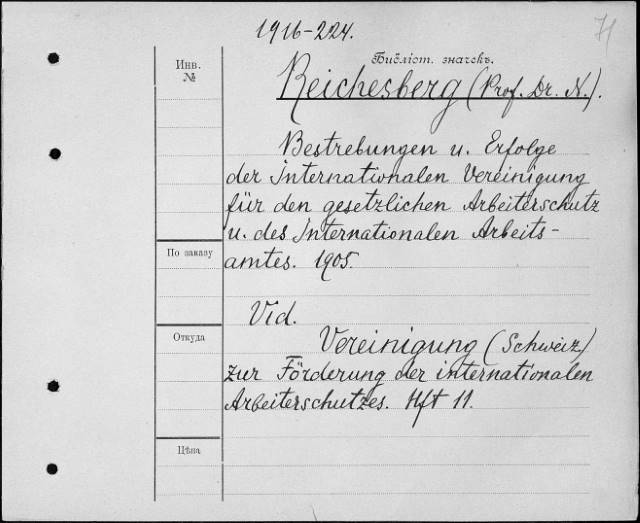 1916-224.
71
Инв.
№
Библіот. значекъ.
Reichesberg (Prof. Dr. N.).
Bestrebungen u. Erfolge
der Internationalen Vereinigung
für den gesetzlichen Arbeiterschutz
u. des Internationalen Arbeits-
amtes. 1905.
По заказу
Vid.
Откуда
Vereinigung (Schweiz)
zur Förderung der internationalen
Arbeiterschutzes. Hft 11.
Цѣна